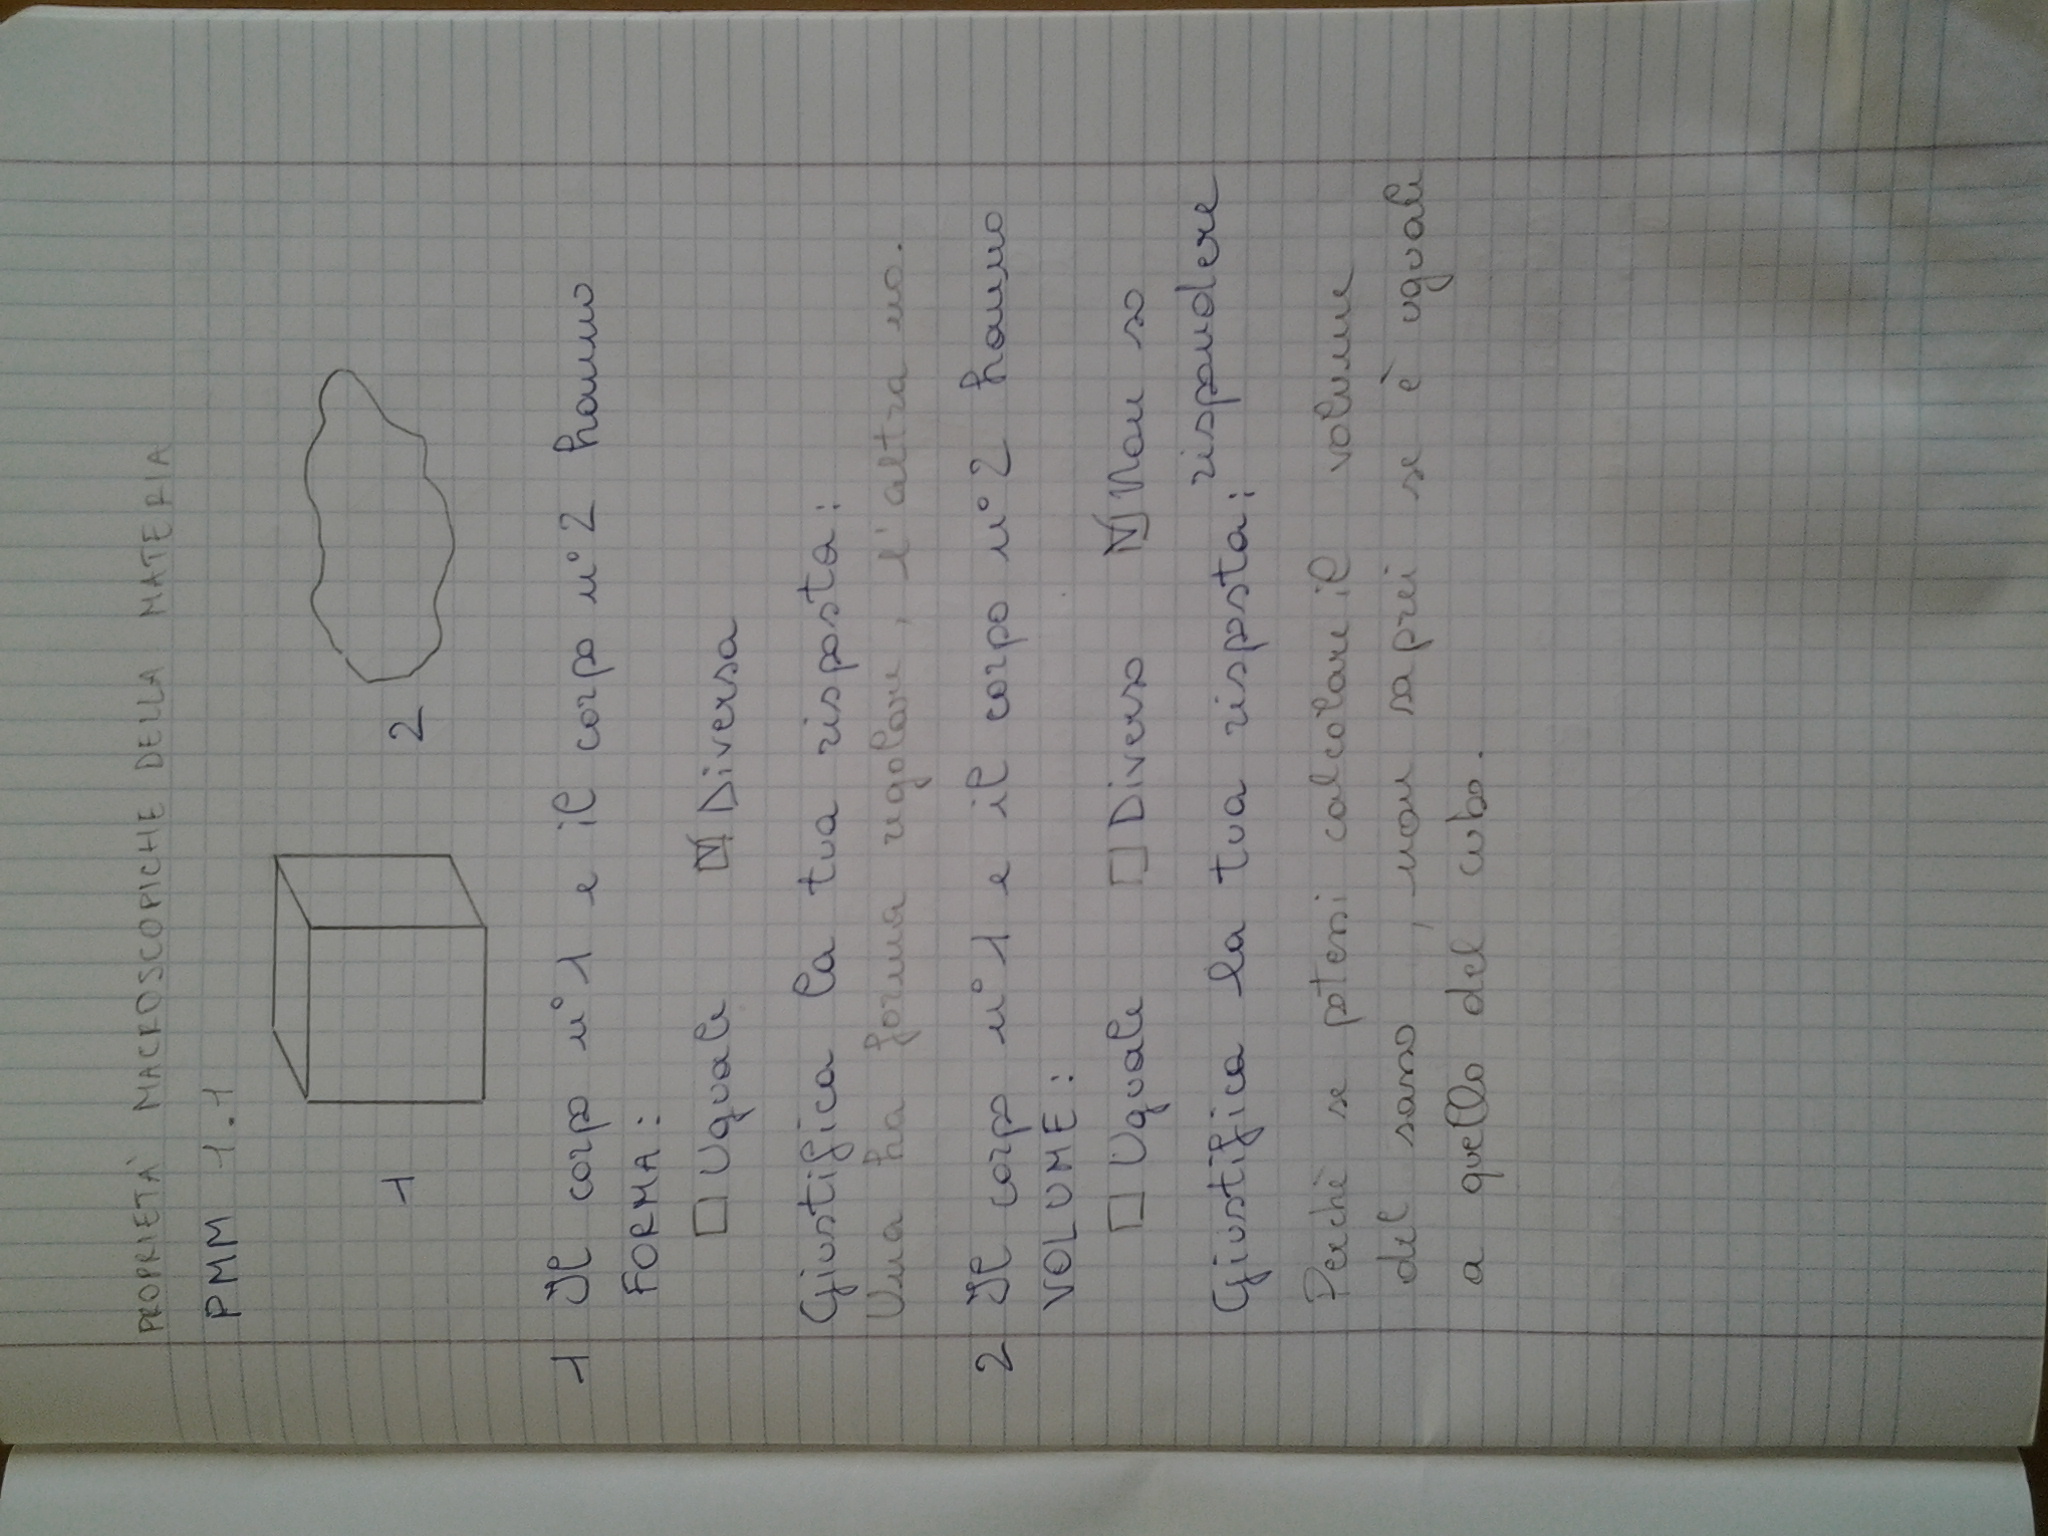 PROPRIETÀ MACROSCOPICHE DELLA MATERIA
PMM 1.1
1
2
1 Il corpo n°1 e il corpo n°2 hanno
FORMA:
☐ Uguale ☑ Diversa
Giustifica la tua risposta:
Una ha forma regolare, l'altra no.
2 Il corpo n°1 e il corpo n°2 hanno
VOLUME:
☐ Uguale ☐ Diverso ☑ Non so
rispondere
Giustifica la tua risposta:
Perchè se potessi calcolare il volume
del sasso, non saprei se è uguale
a quello del cubo.